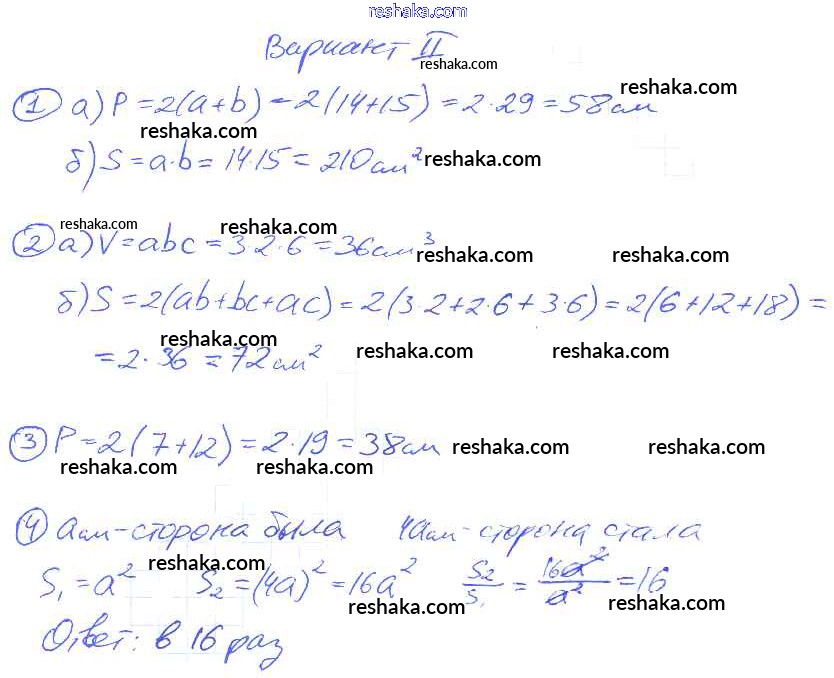 reshaka.com
Вариант II
reshaka.com
① а) P = 2(a+b) = 2(14+15) = 2·29 = 58 см
reshaka.com
reshaka.com
б) S = a·b = 14·15 = 210 см²
reshaka.com
reshaka.com
② а) V = abc = 3·2·6 = 36 см³
reshaka.com
reshaka.com reshaka.com
б) S = 2(ab+bc+ac) = 2(3·2+2·6+3·6) = 2(6+12+18) =
reshaka.com
= 2·36 = 72 см²
reshaka.com reshaka.com
③ P = 2(7+12) = 2·19 = 38 см
reshaka.com reshaka.com
reshaka.com reshaka.com
④ a см - сторона была 4a см - сторона стала
reshaka.com
S₁ = a² S₂ = (4a)² = 16a² S₂/S₁ = 16a²/a² = 16
reshaka.com reshaka.com
Ответ: в 16 раз